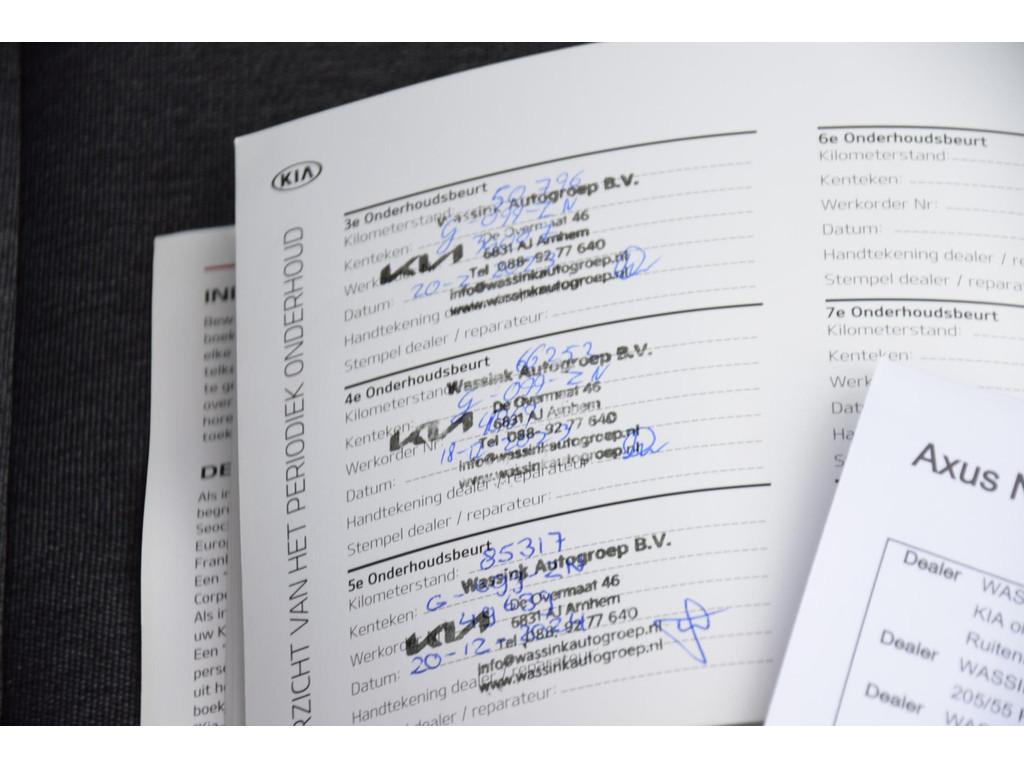 KIA
RZICHT VAN HET PERIODIEK ONDERHOUD
3e Onderhoudsbeurt
Kilometerstand: 50796
Wassink Autogroep B.V.
Kenteken: G-099-ZN
De Overmaat 46
6831 AJ Arnhem
KIA
Werkorder
Tel 088-92 77 640
Datum: 20-2
info@wassinkautogroep.nl
www.wassinkautogroep.nl
Handtekening
Stempel dealer / reparateur:
4e Onderhoudsbeurt
Kilometerstand 66253
Wassink Autogroep B.V.
Kenteken: G-099-ZN
De Overmaat 46
6831 AJ Arnhem
KIA
Werkorder Nr
Tel 088-92 77 640
18-12
info@wassinkautogroep.nl
www.wassinkautogroep.nl
Datum:
Handtekening dealer / reparateur
Stempel dealer / reparateur:
5e Onderhoudsbeurt
Kilometerstand: 85317
Wassink Autogroep B.V.
Kenteken: G-099-ZN
De Overmaat 46
6831 AJ Arnhem
KIA
Werkord
Tel 088-92 77 640
20-12-2024
info@wassinkautogroep.nl
www.wassinkautogroep.nl
Datum:
Handtekening dealer / reparateur:
dealer / reparateur:
6e Onderhoudsbeurt
Kilometerstand:
Kenteken:
Werkorder Nr:
Datum:
Handtekening dealer / re
Stempel dealer / repara
7e Onderhoudsbeurt
Kilometerstand:
Kenteken:
Werk
Dat
Ha
S
INI
Bew
boek
elke
telke
te g
over
hore
toek
DE
Als ir
begr
Seoc
Euro
Frank
Een
Corp
Als ir
uw K
Een
pers
uit h
boek
Axus N
Dealer WAS
KIA o
Ruiten
Dealer WASSI
205/55
Dealer WAS